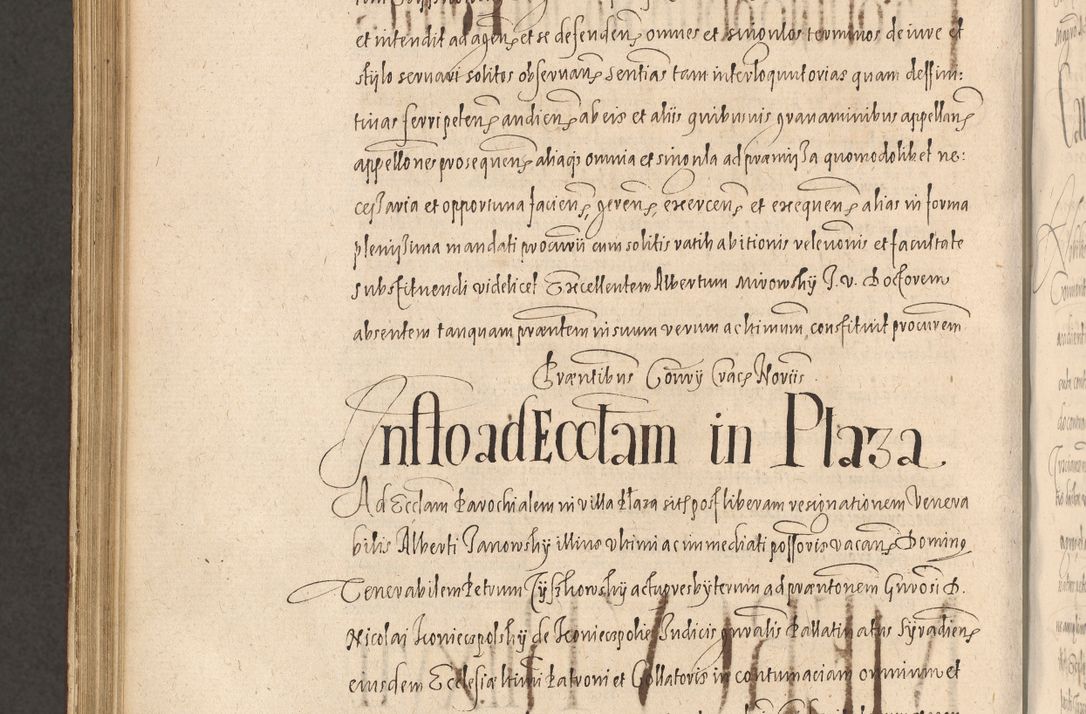 et intendit ad agen et se defenden omnes et singulos terminos de iure et
stylo servari solitos observan sentias tam interloquutorias quam deffini:
tivas ferri peten audien ab eis et aliis quibusvis gravaminibus appellan
appellones prosequen aliaqz omnia et singula ad præmissa quomodolibet ne:
cessaria et opportuna facien, geren, exercen et exequen alias in forma
plenissima mandati procurii cum solitis ratihabitionis relevonis et facultate
substituendi videlicet Excellentem Albertum Mirowsky J. v. Doctorem
absentem tanquam præntem in suum verum ac ltimum constituit procurem
Præntibus Consrij Crace Noriis
Insto ad Ecclam in Plaza
Ad Ecclam Parochialem in villa Płaza sit post liberam resignationem Venera
bilis Alberti Janowsky illius ultimi ac immediati possoris vacan Dominus
Venerabilem Petrum Tyszkowsky actu presbyterum ad præntonem Gnrosi D.
Nicolai Koniecpolsky de Koniecpolie Judicis gnralis Pallatinatus Syradien
eiusdem Ecclesiæ ltimi Patroni et Collatoris in contumaciam omnium et